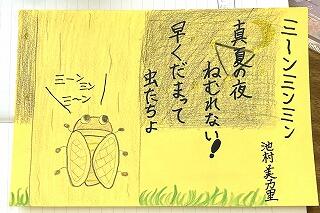 ミーンミンミン
真夏の夜
ねむれない!
早くだまって
虫たちよ
池村美力里
ミーン
ミン
ミーン